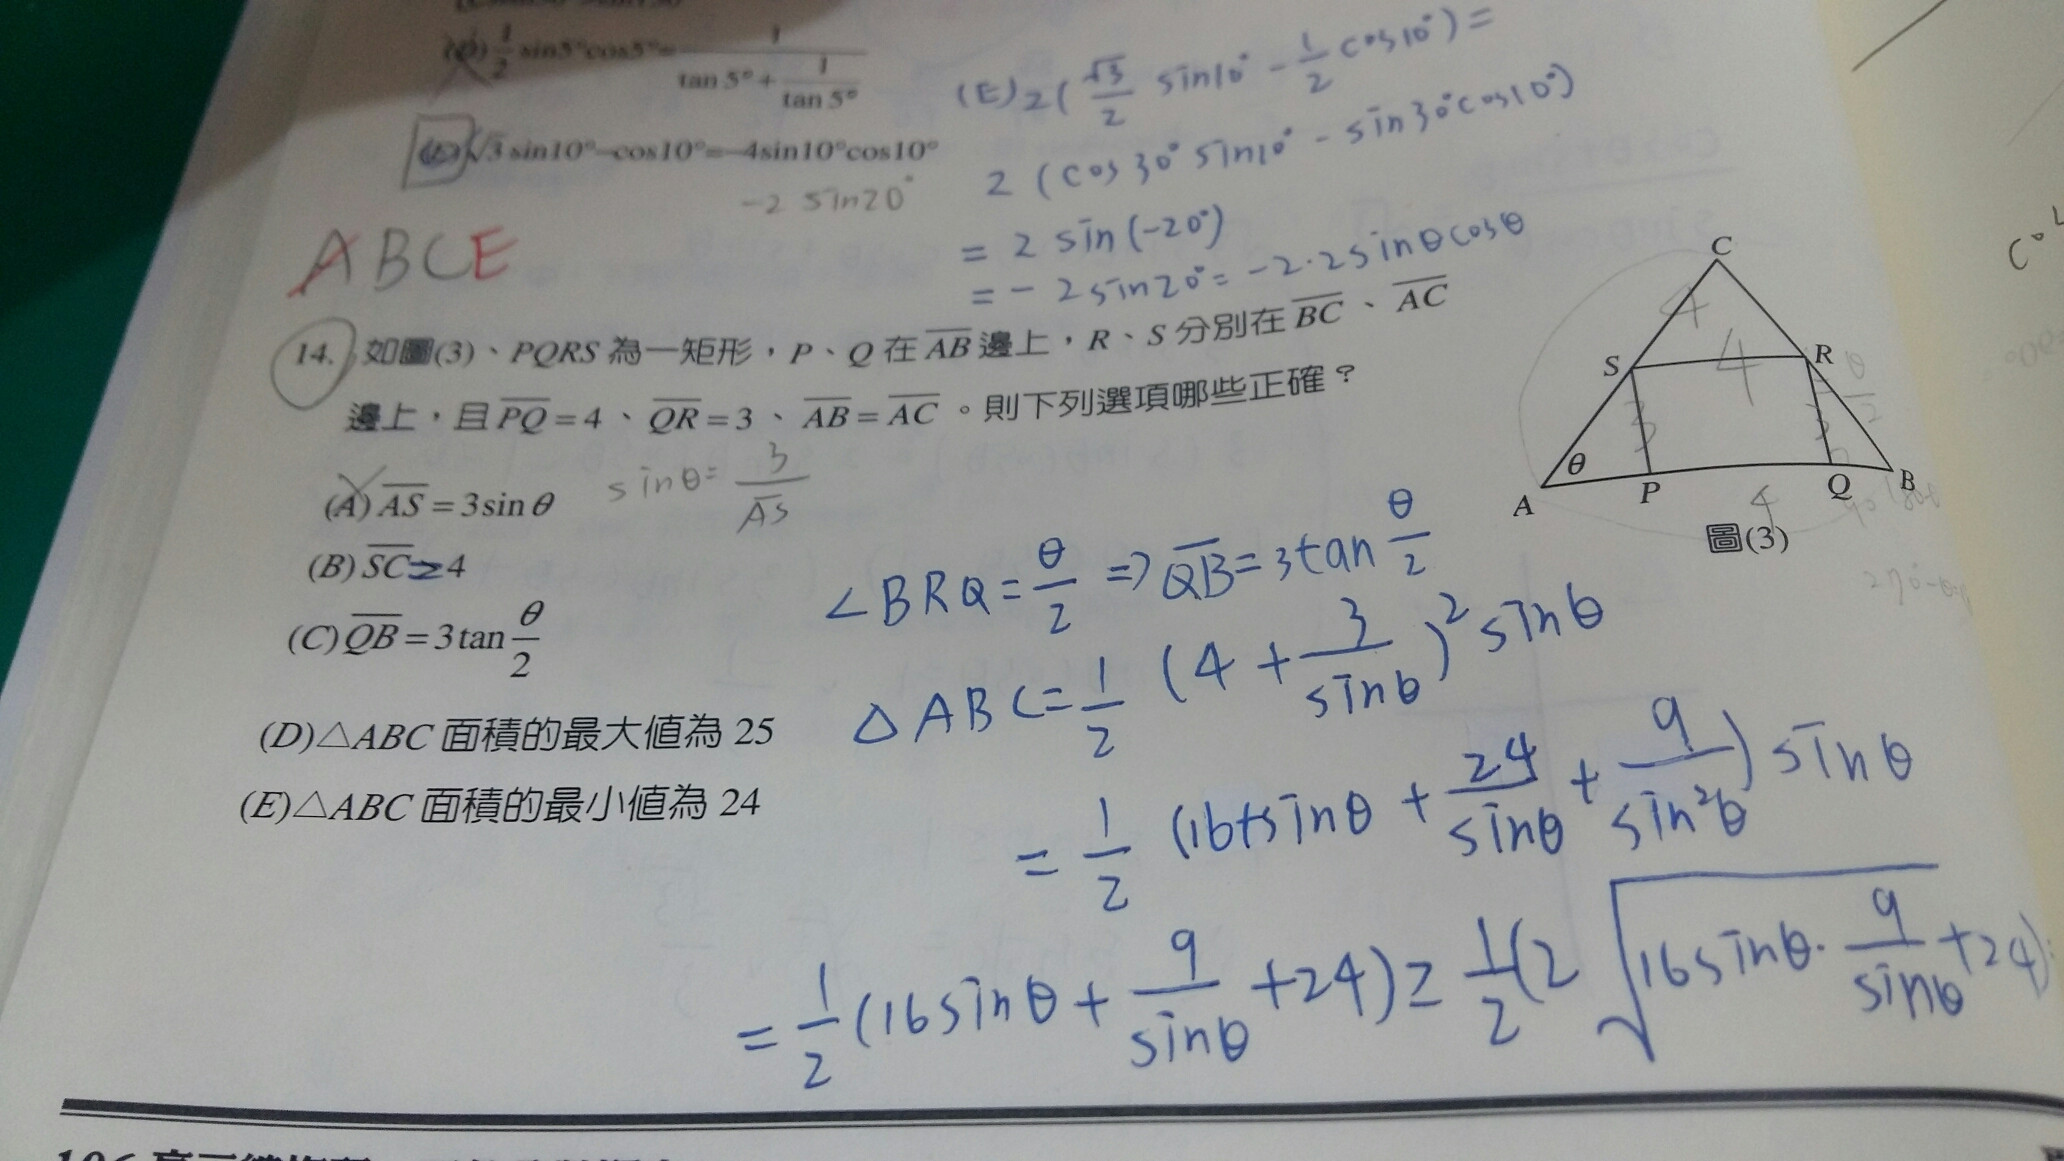 (D) 1/2 sin5°cos5°= 1/(tan 5°+ 1/tan 5°)
(E)2(√3/2 sin10° - 1/2 cos10°)=
√3 sin10°-cos10°=-4sin10°cos10°
2(cos30°sin10° - sin30°cos10°)
-2 sin20°
= 2 sin(-20°)
ABCE
= -2sin20°= -2·2sinθcosθ
14. 如圖(3)、PQRS 為一矩形，P、Q 在 AB 邊上，R、S 分別在 BC、AC
邊上，且 PQ=4、QR=3、AB=AC。則下列選項哪些正確？
(A) AS=3sinθ sinθ= 3/AS
(B) SC≥4
(C) QB=3tan θ/2
(D)△ABC 面積的最大值為 25
(E)△ABC 面積的最小值為 24
C
4
S 4 R θ/2
3 3
θ
A P Q B
4
圖(3)
∠BRQ= θ/2 ⇒ QB=3tan θ/2
△ABC= 1/2 (4+ 3/sinθ)² sinθ
= 1/2 (16+sinθ + 24/sinθ + 9/sin²θ) sinθ
= 1/2 (16sinθ + 9/sinθ +24) ≥ 1/2 (2√(16sinθ· 9/sinθ +24)